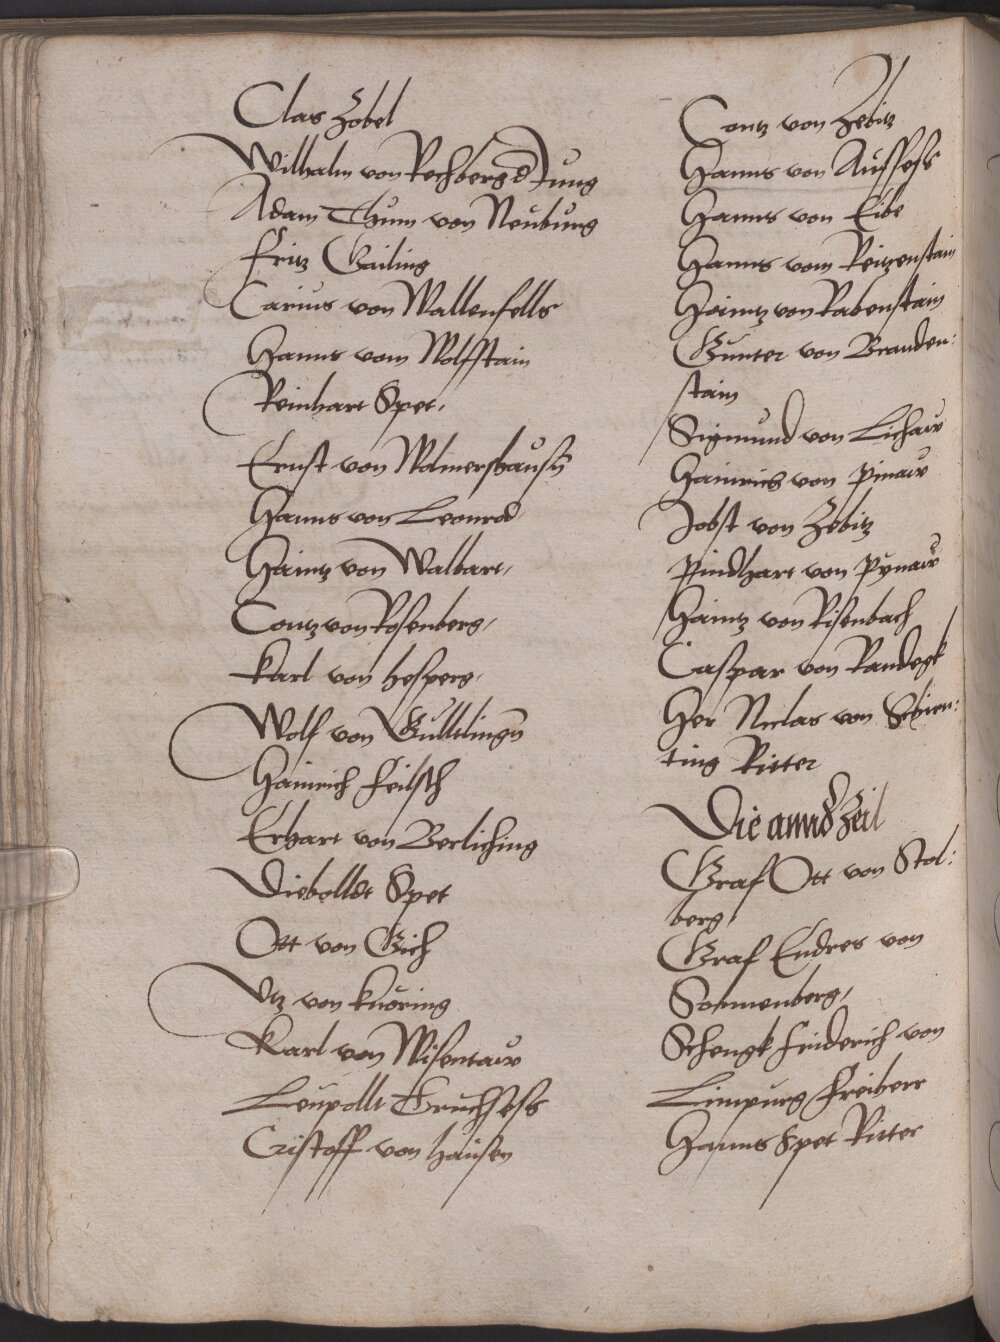 Clas Zobel
Wilhalm von Rechberg d Jung
Adam Thum von Neuburg
Fritz Gailing
Carius von Wallenfells
Hanns vom Wolffstain
Reinhart Spet,
Ernst von Wolmershausn
Hanns von Leonrod
Haintz von Walbart,
Contz von Rosenberg,
Karl von Hesperg,
Wolf von Gulltlingn
Hainrich Feilsch
Erhart von Berliching
Dieboldt Spet
Ott von Gich
Utz von Knöring
Karl von Wisentaw
Leupollt Truchses
Cristoff von Hausen
Contz von Zebitz
Hanns von Aufses
Hanns von Eibe
Hanns vom Reitzenstain
Haintz von Rabenstain
Günter von Branden:
stain
Sigmund von Lichaw
Hainrich von Pinaw
Jobst von Zebitz
Pindhart von Pÿnaw
Haintz von Risenbach
Caspar von Randegk
Her Niclas von
ting Ritter
Die annd Zeil
Graf Ott von Stol:
berg,
Graf Endres von
Sonnenberg,
Schengk Friderich von
Limpurg Freiherr
Hanns Spet Ritter